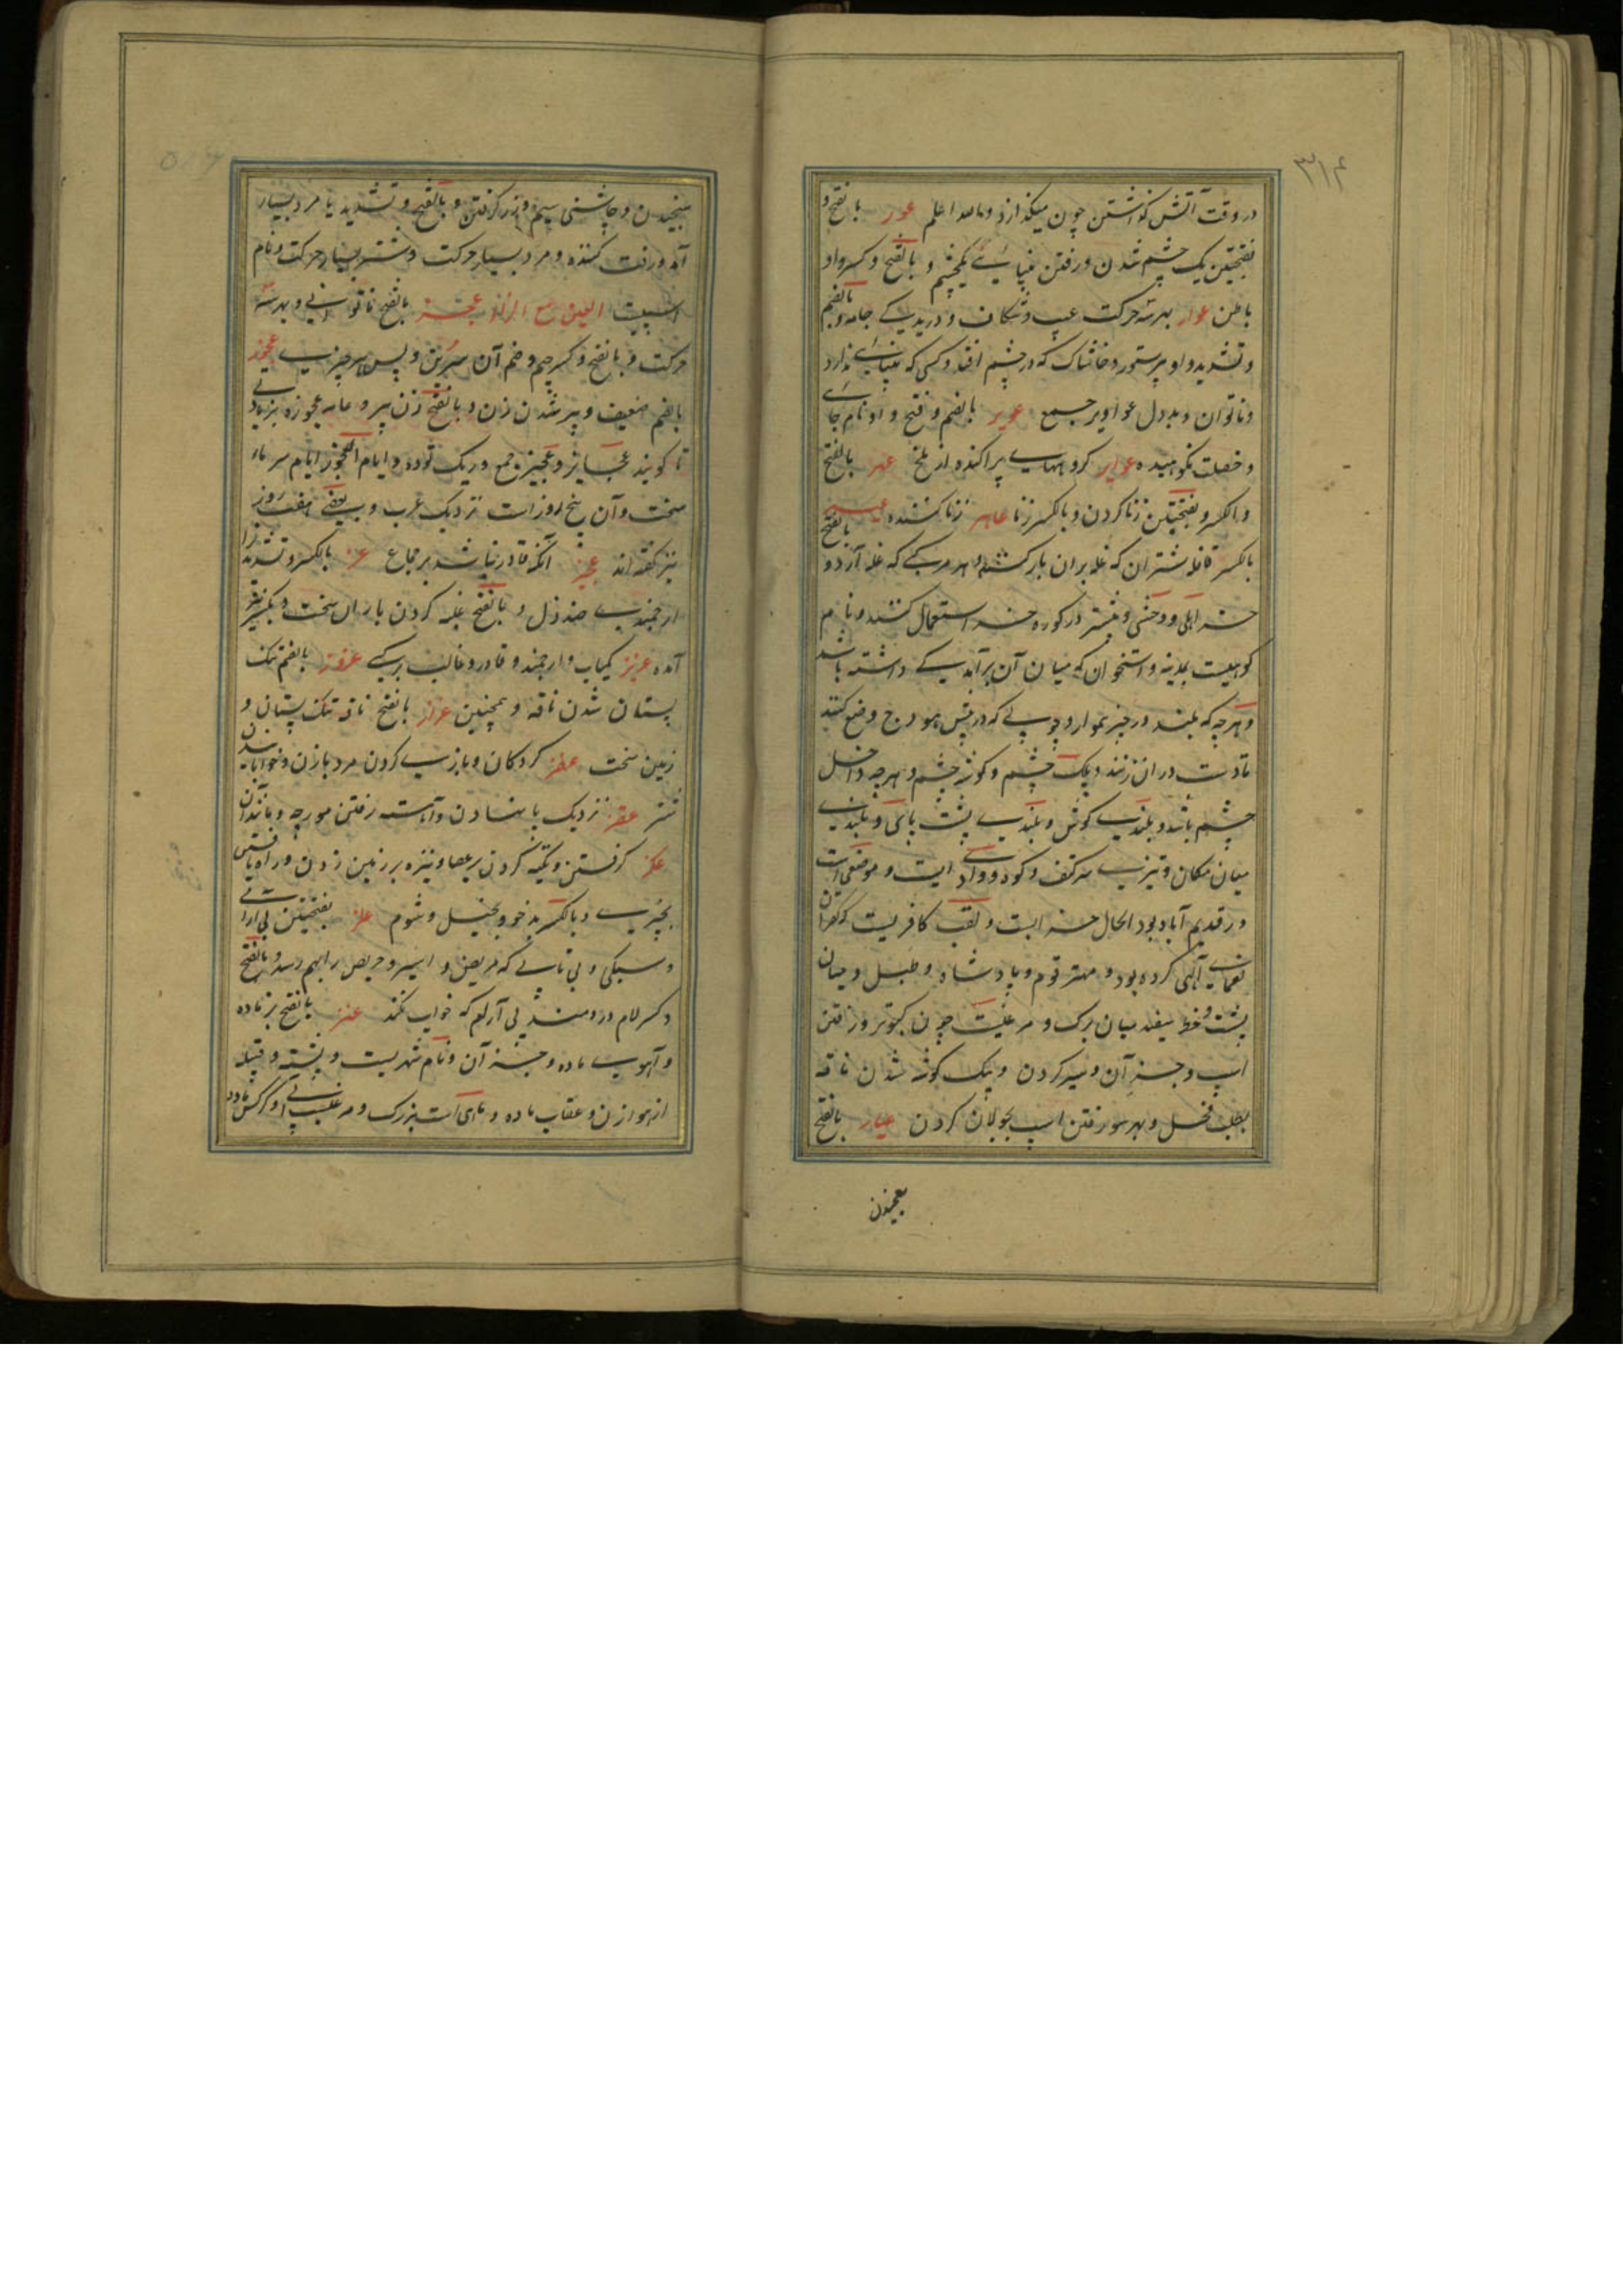 ۳۱۴
در وقت آتش گذاشتن چون میگدازد والله اعلم عور بالفتح و
بفتحتین یک چشم شدن و رفتن بینایی یکچشم و بالفتح و کسر واو
باطن عوار بهر سه حرکت عیب و شکاف و دریدگی جامه و بالضم
و تشدید واو پرستور و خاشاک که در چشم افتد و کسی که بینایی ندارد
و ناتوان و بددل عواویر جمع عویر بالضم و فتح واو نام جای
و خصلت نکوهیده عوایر گروههای پراکنده از ملخ عهر بالفتح
و الکسر و بفتحتین زنا کردن و بالکسر زنا عاهر زنا کننده عیر بالفتح
بالکسر قافله شتران که غله بران بار کشند و هر مرکبی که غله آرد و
خر اهلی و وحشی و بیشتر در گوره خر استعمال کنند و نام
کوهیست بمدینه و استخوان که میان آن برآمدگی داشته باشد
و هرچه که بلند در چیز هموار و چوبی که در پیش هودج وضع کنند
تا دست در ان زنند و پلک چشم و گوشه چشم و هرچه داخل
چشم باشد و بلندی گوش و بلندی پشت پای و بلندی
میان پیکان و تیزی سر کتف و کود و وادی ایست و موضعی است
در قدیم آباد بود الحال خرابست و لقب کافریست که کفران
نعمای الهی کرده بود و مهتر قوم و پادشاه و طبل و میان
پشت و خط سفید میان برگ و مرغیست چون کبوتر و رفتن
اسپ و جز آن و سیر کردن و یک گوشه شدن ناقه
بطلب فحل و بهر سو رفتن اسپ بجولان کردن عیار بالفتح
سنجیدن و چاشنی سیم و زر گرفتن و بالفتح و تشدید یا مرد بسیار
آمد و رفت کننده و مرد بسیار حرکت و شتر بسیار حرکت و نام
اسپیست العین مع الزاء عجز بالفتح ناتوانی و بهر سه
حرکت و بالفتح و کسر جیم و ضم آن سرین و پس هر چیزی عجوز
بالضم ضعیف و پیر شدن زن و بالفتح زن پیر و عامه عجوزه بزیادتی
تا گویند عجایز و عجز جمع و ریگ توده و ایام العجوز ایام سرمای
سخت و آن پنج روز است نزدیک عرب و بعضی هفت روز
نیز گفته اند عجیز آنکه قادر نباشد بر جماع عز بالکسر و تشدید زا
ارجمندی ضد ذل و بالفتح غلبه کردن باران سخت و بکسر نیز
آمده عزیز کمیاب و ارجمند و قادر و غالب بر کسی عزوز بالضم تنگ
پستان شدن ناقه و همچنین عزاز بالفتح ناقه تنگ پستان و
زمین سخت عفز گردکان و بازی کردن مرد بازن و خوابانیدن
شتر عقز نزدیک پا نهادن و آهسته رفتن مورچه و مانند آن
عکز گرفتن و تکیه کردن بر عصا و نیزه بر زمین زدن و راه یافتن
بچیزی و بالکسر بدخو و بخیل و شوم علز بفتحتین بی آرامی
و سبکی و بی تابی که مریض و اسیر و حریص را بهم رسد و بالفتح
و کسر لام دردمند بی آرام که خواب نکند عنز بالفتح بز ماده
و آهوی ماده و جز آن و نام شهریست و پشته و قبیله
از هوازن و عقاب ماده و ماهی است بزرگ و مرغیست آبی و کرکس ماده